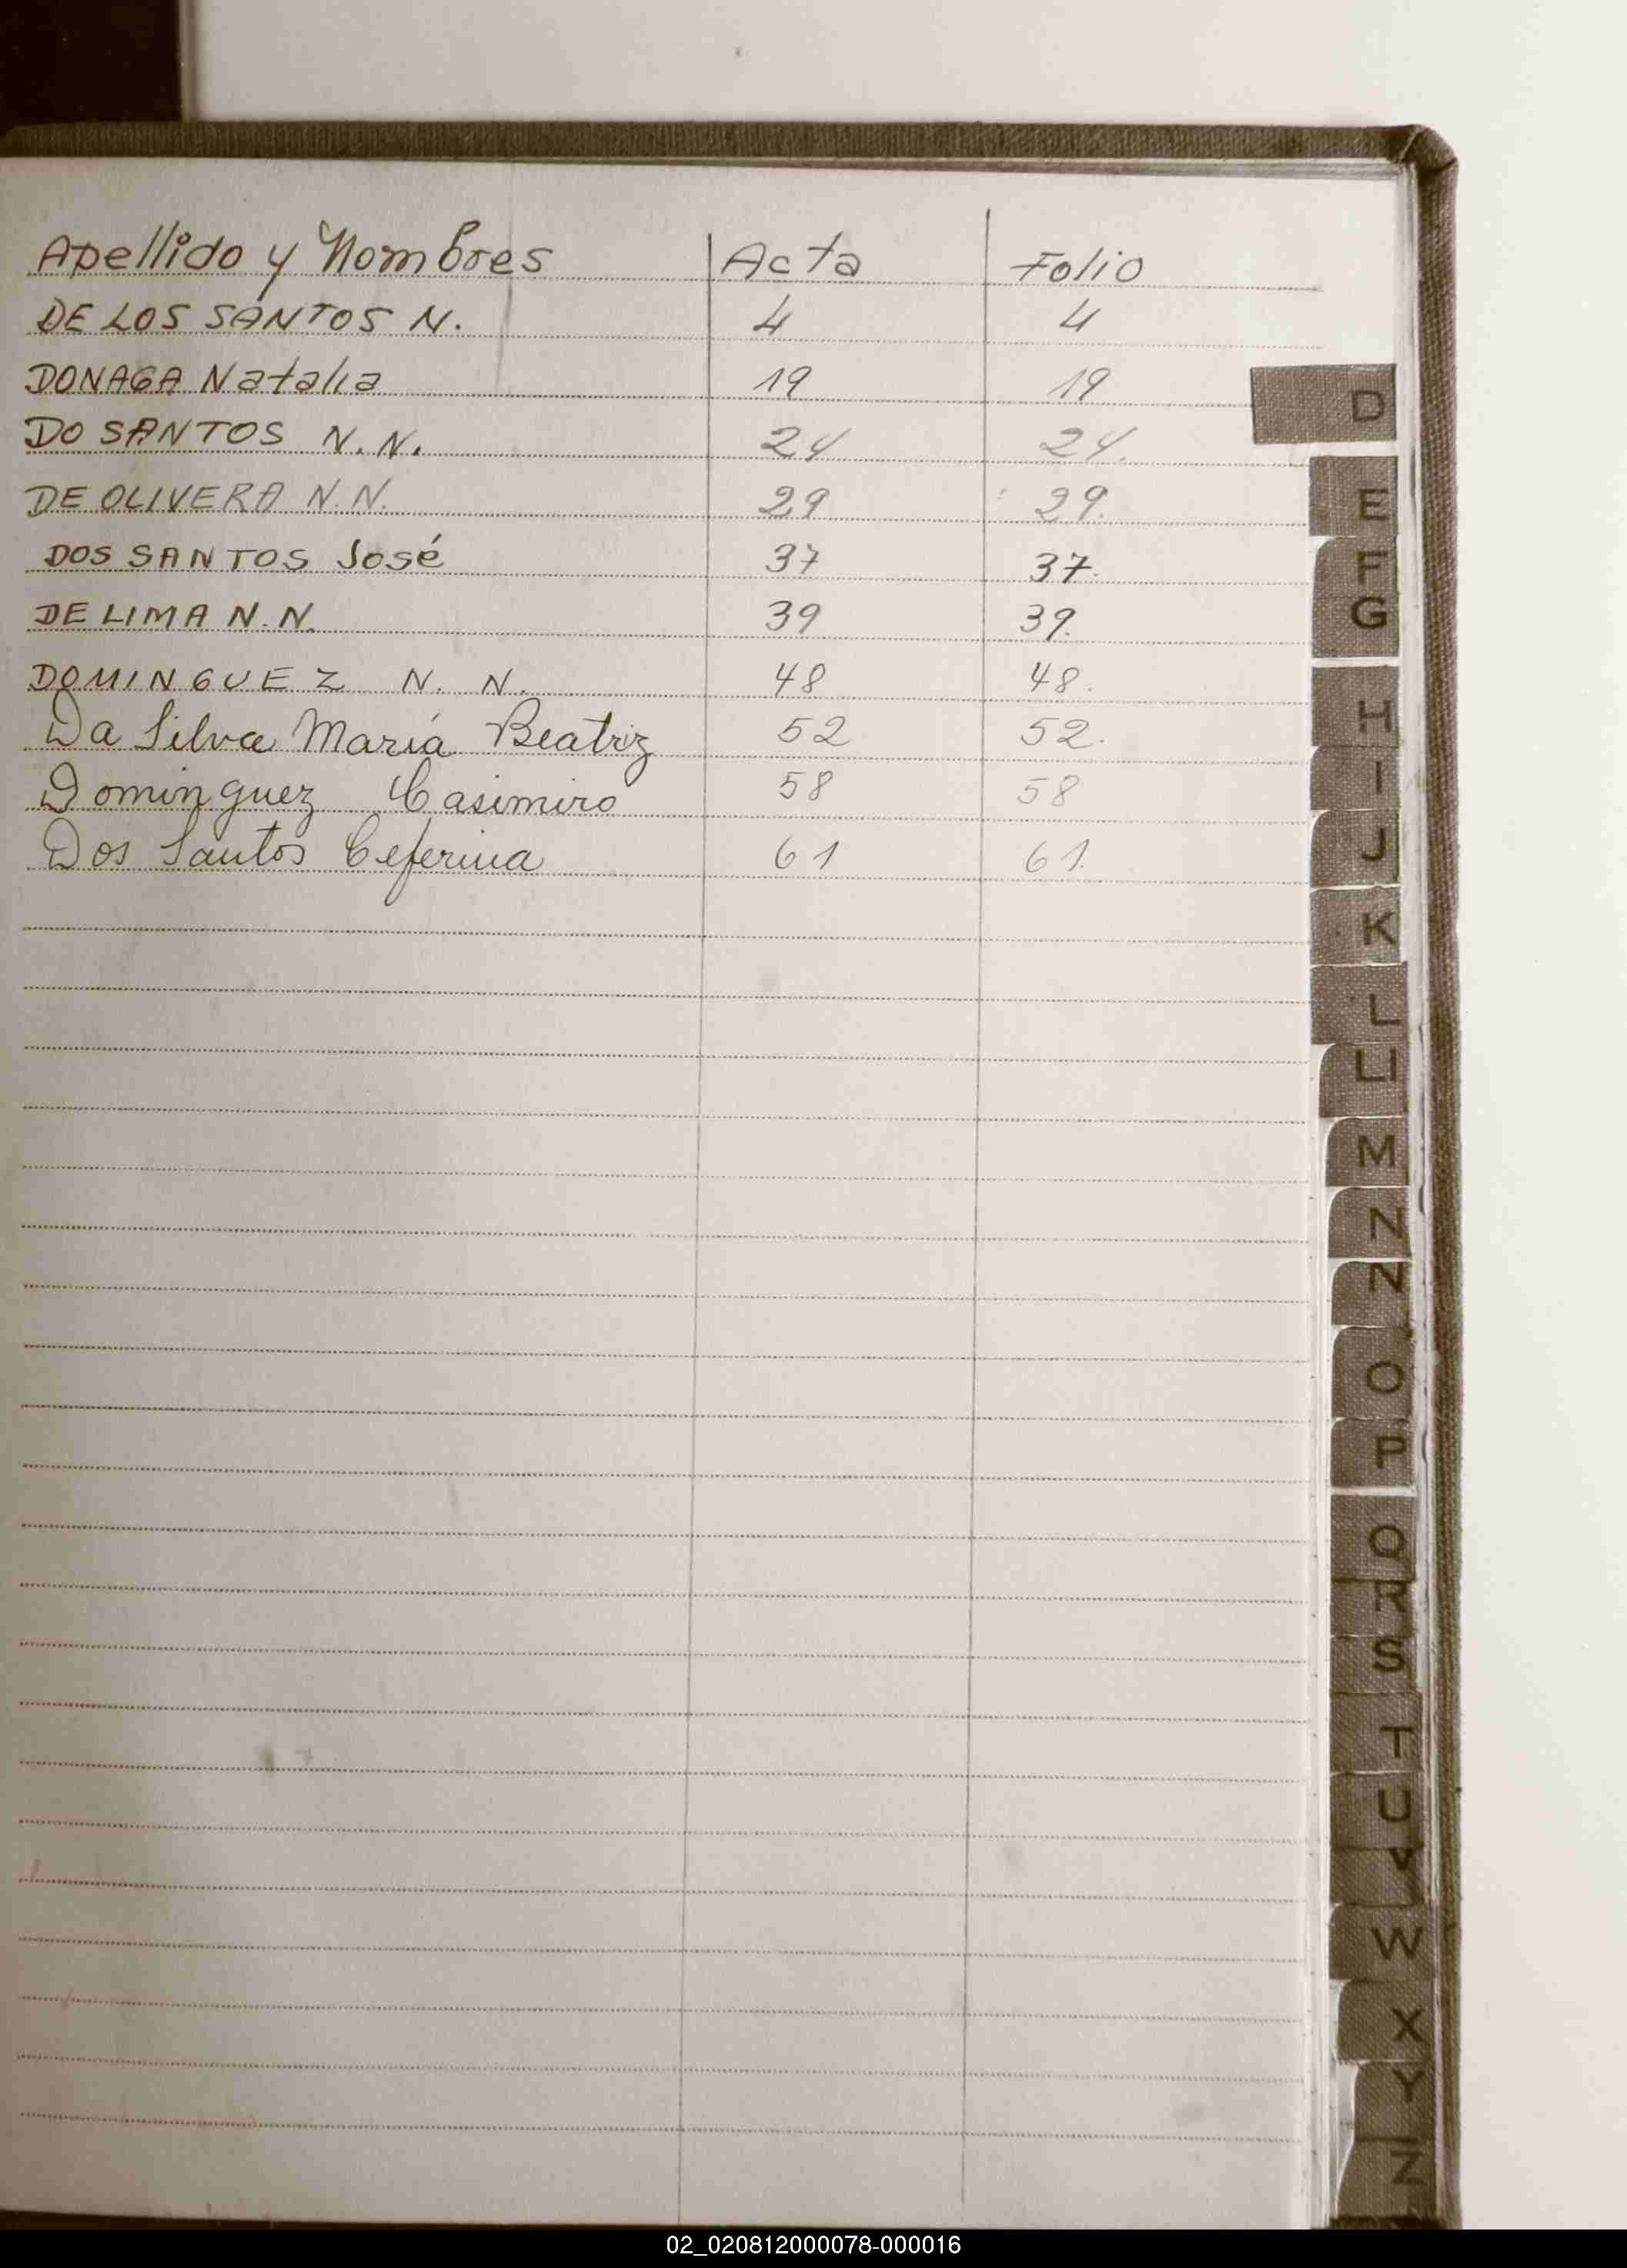 Apellido y Nombres Acta Folio
DE LOS SANTOS N. 4 4
DONAGA Natalia 19 19
DO SANTOS N.N. 24 24.
DE OLIVERA N.N. 29 29.
DOS SANTOS José 37 37.
DE LIMA N.N. 39 39.
DOMINGUEZ N. N. 48 48.
Da Silva María Beatriz 52 52.
Dominguez Casimiro 58 58
Dos Santos Ceferina 61 61.
D
E
F
G
H
I
J
K
L
LI
M
N
N
O
P
Q
R
S
T
U
V
W
X
Y
Z
02_020812000078-000016